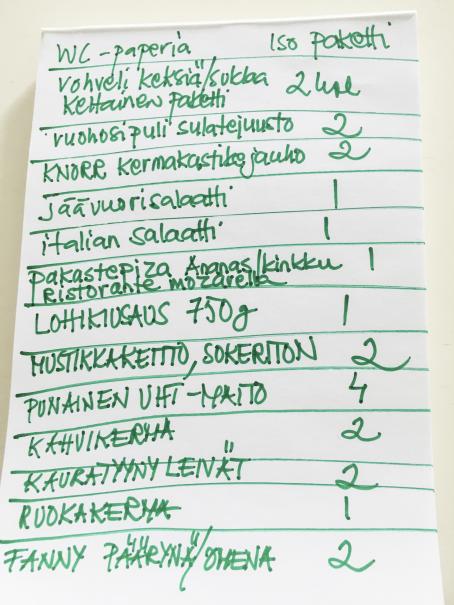 WC-paperia iso paketti
vohveli keksiä/suklaa 2
keltainen paketti
ruohosipuli sulatejuusto 2
KNORR kermakastikejauho 2
jäävuorisalaatti 1
italian salaatti 1
pakastepizza Ananas/kinkku 1
Ristorante mozarella
LOHIKIUSAUS 750g 1
MUSTIKKAKEITTO, SOKERITON 2
PUNAINEN UHT-MAITO 4
KAHVIKERMA 2
KAURATYYNYLEIVÄT 2
RUOKAKERMA 1
FANNY PÄÄRYNÄ/OMENA 2